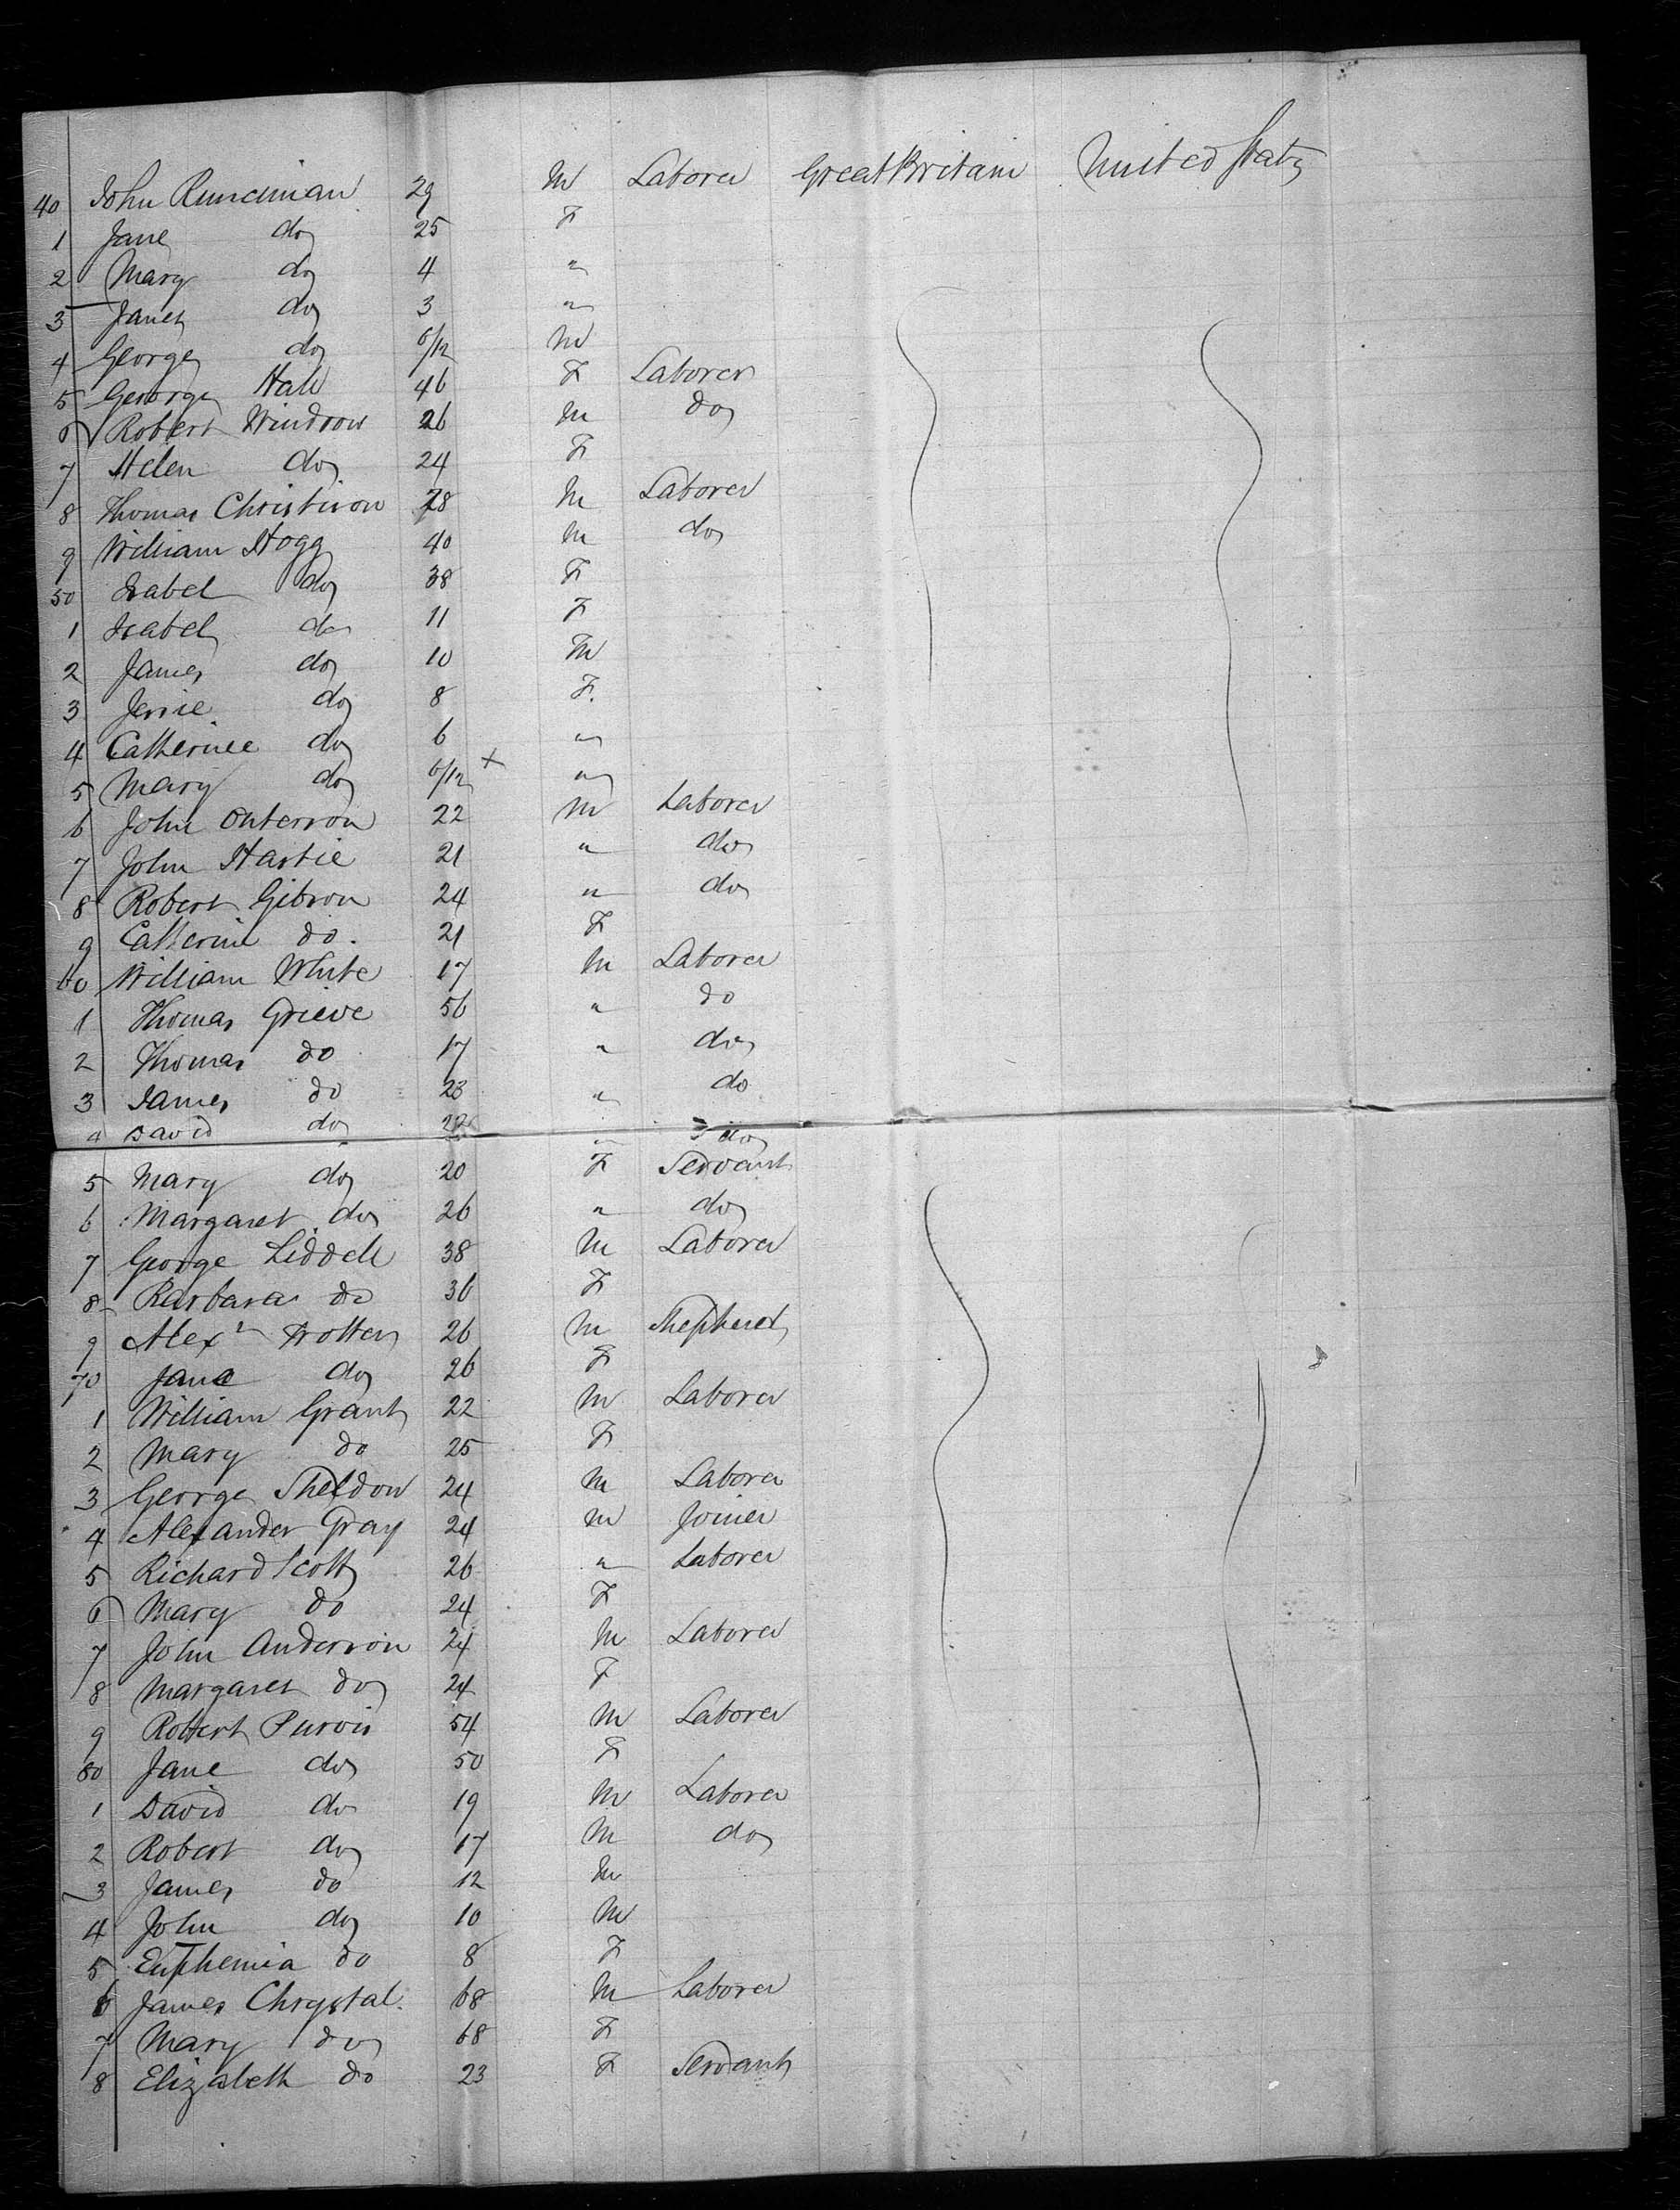 40 John Runciman 29 M Laborer Great Britain United States
1 Jane do 25 F
2 Mary do 4 "
3 Janet do 3 "
4 George do 6/12 M
5 George Hall 46 F Laborer
6 Robert Windrow 26 M do
7 Helen do 24 F
8 Thomas Christison 28 M Laborer
9 William Hogg 40 M do
50 Isabel do 38 F
1 Isabel do 11 F
2 James do 10 M
3 Jessie do 8 F.
4 Catherine do 6 "
5 Mary do 6/12 + "
6 John 22 M Laborer
7 John Hastie 21 " do
8 Robert Gibson 24 " do
9 Catherine do. 21 F
60 William White 17 M Laborer
1 Thomas Grieve 56 " do
2 Thomas do 17 " do
3 James do 23 " do
4 David do 22 " do
5 Mary do 20 F Servant
6 Margaret do 26 " do
7 George Liddell 38 M Laborer
8 Barbara do 36 F
9 Alexr Trotter 26 M Shepherd
70 Jane do 26 F
1 William Grant 22 M Laborer
2 Mary do 25 F
3 George Sheldon 24 M Laborer
4 Alexander Gray 24 M Joiner
5 Richard Scott 26 " Laborer
6 Mary do 24 F
7 John Anderson 24 M Laborer
8 Margaret do 24 F
9 Robert Purvis 54 M Laborer
80 Jane do 50 F
1 David do 19 M Laborer
2 Robert do 17 M do
3 James do 12 M
4 John do 10 M
5 Euphemia do 8 F
6 James Chrystal. 68 M Laborer
7 Mary do 68 F
8 Elizabeth do 23 F Servant